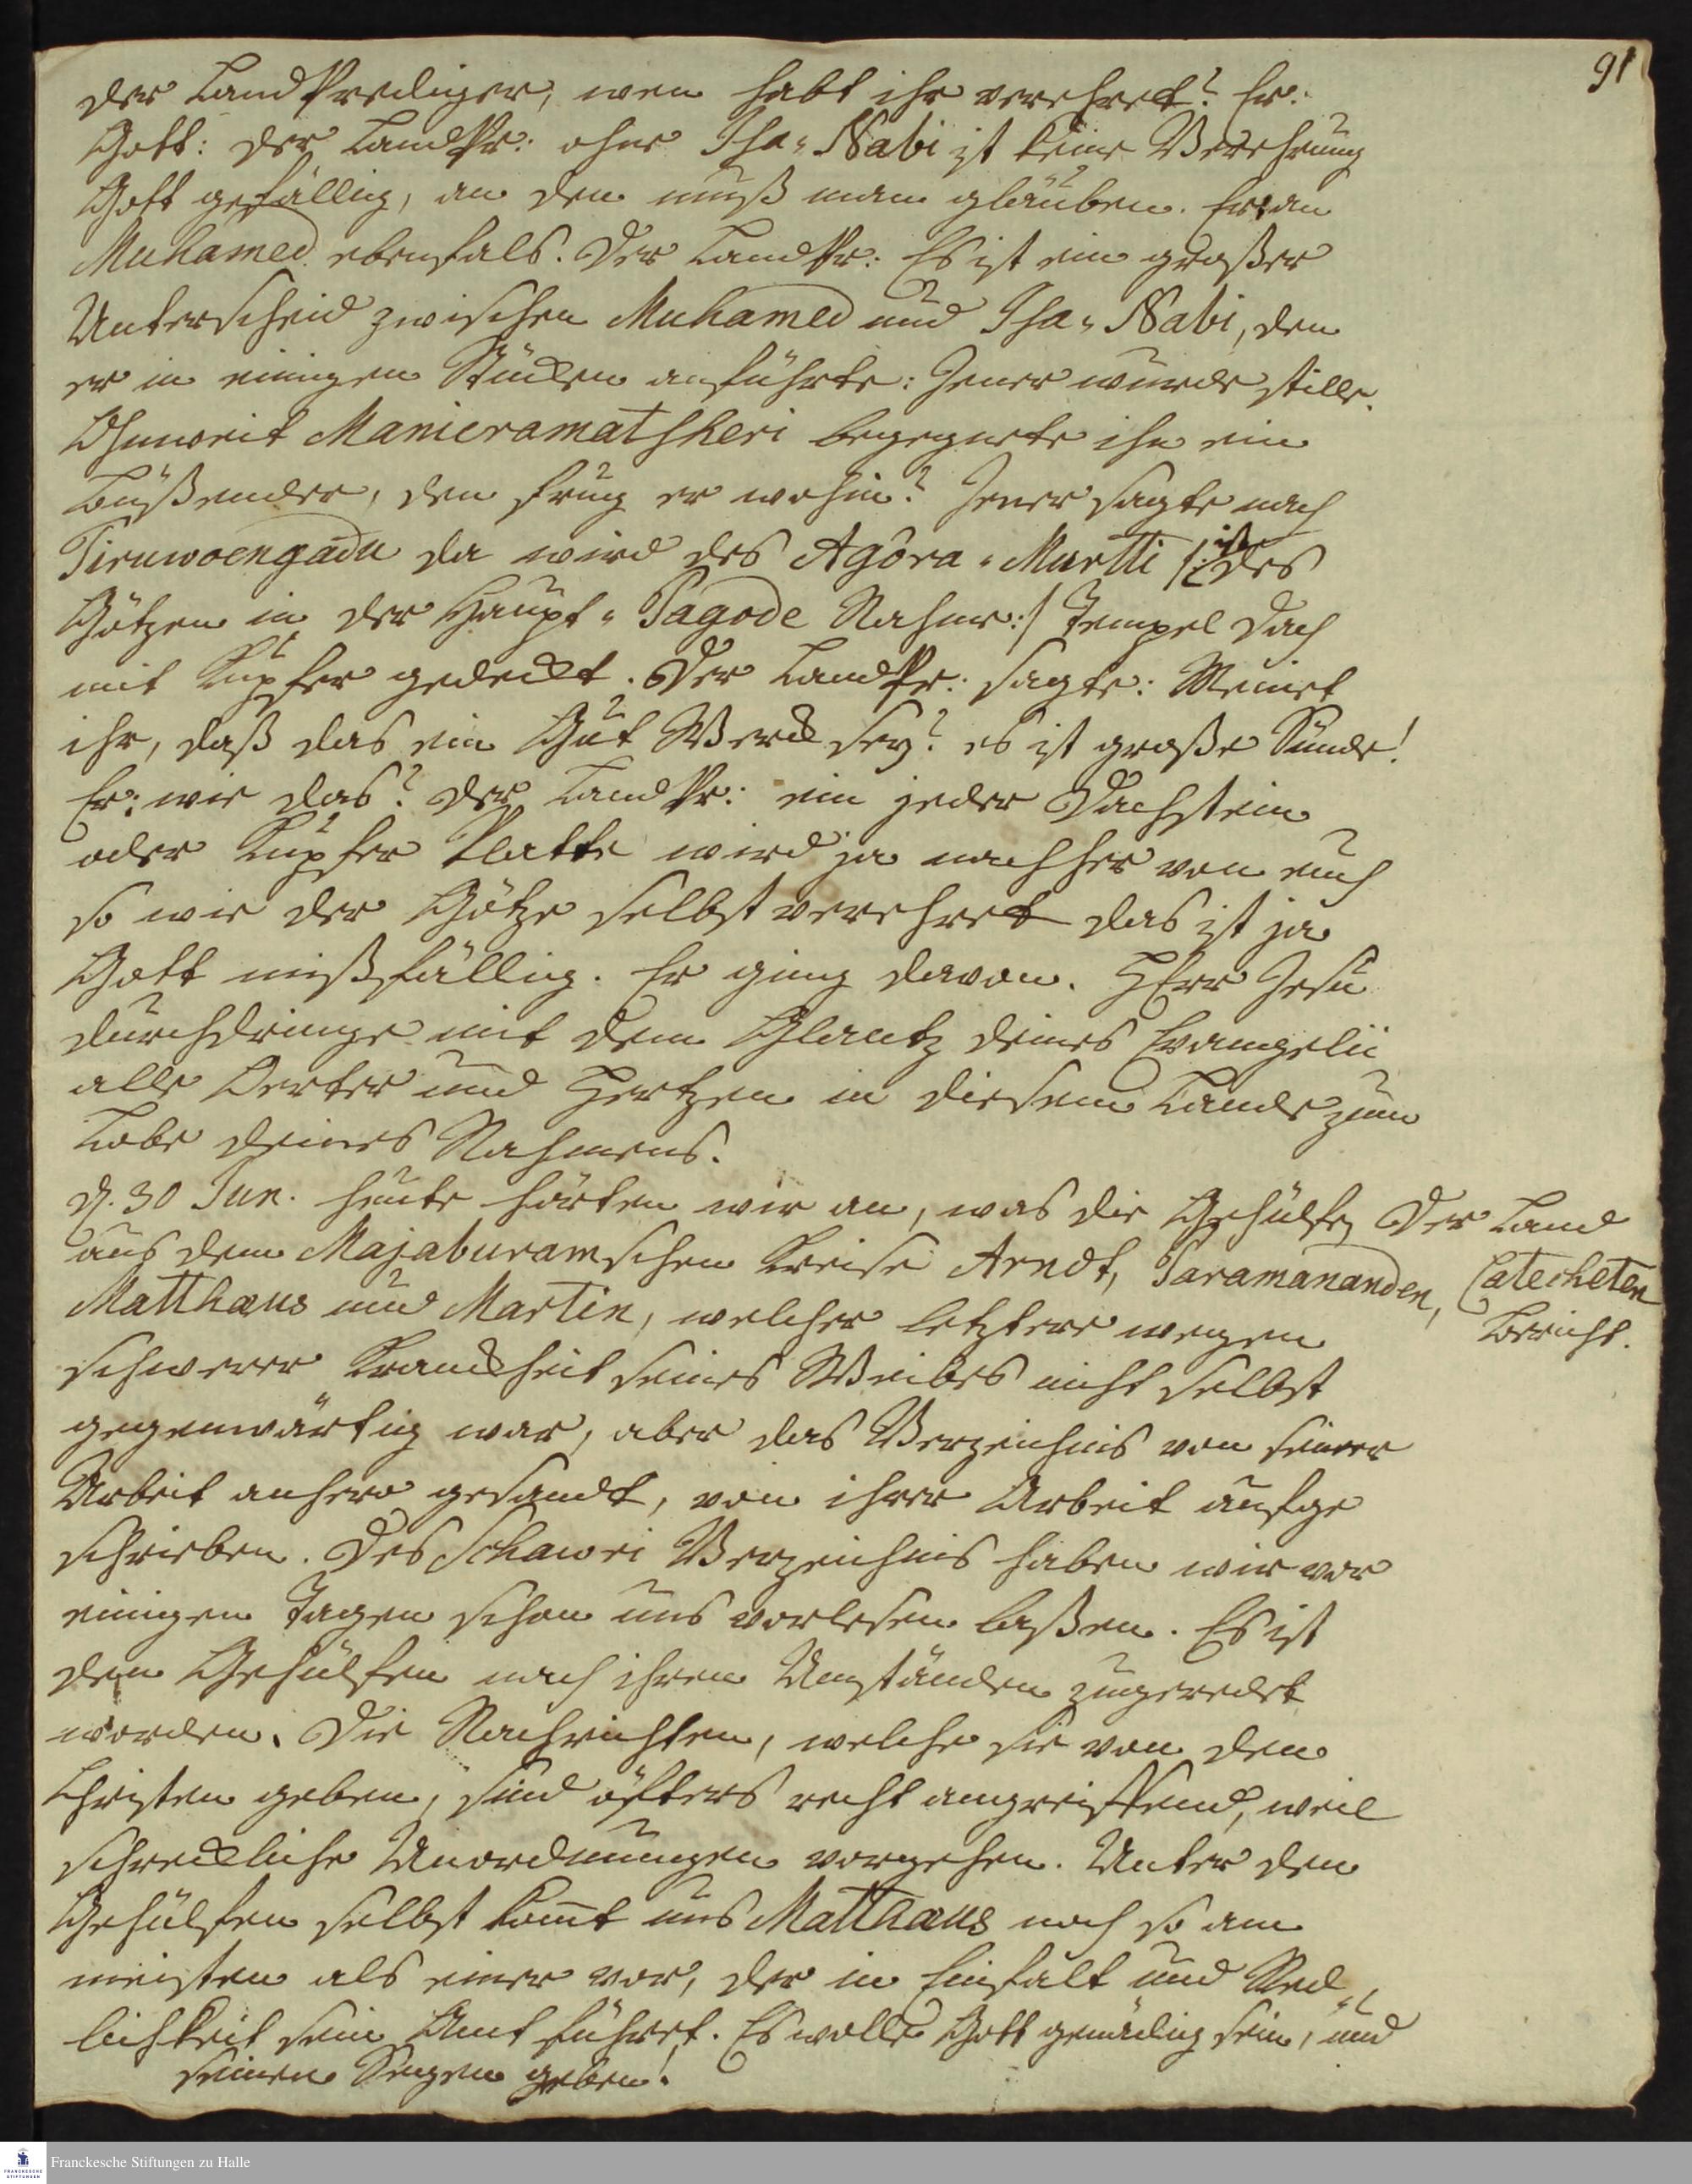 91
der LandPrediger, wen habt ihr verehret? Er:
Gott: der LandPr: ohne Isa-Nabi ist keine Verehrung
Gott gefällig, an den muß man glauben. Er: an
Muhamed ebenfals. Der LandPr: Es ist ein großer
Unterscheid zwischen Muhamed und Isa-Nabi, den
er in einigen Stücken anführte: Jener wurde stille.
Ohnweit Manieramatsheri begegnete ihm ein
Büßender, den frug er wohin? Jener sagte nach
Tiruwoengadu da wird des Agora-Murtti /: ist des
Götzen in der Haupt-Pagode Nahme :/ Tempel Dach
mit Kupfer gedeckt. Der LandPr: sagte: Meinet
ihr, daß das ein Gut Werck sey? es ist große Sünde!
Er: wie das? der LandPr: ein jeder Dachstein
oder Kupfer Platte wird ja nachher von euch
so wie der Götze selbst verehret das ist ja
Gott mißfällig. Er ging davon. HErr Jesu
durchdringe mit dem Glantz deines Evangelii
alle Oerter und Hertzen in diesem Lande zum
Lobe deines Nahmens.
d. 30 Jun. heute hörten wir an, was die Gehülfen
Der Land
Catecheten
Bericht.
aus dem Majaburamschen Kreise Arndt, Paramananden,
Matthæus und Martin, welcher letztere wegen
schwerer Kranckheit seines Weibes nicht selbst
gegenwärtig war, aber das Verzeichnis von seiner
Arbeit anhero gesandt, von ihrer Arbeit aufge
schrieben. Des Schawri Verzeichnis haben wir vor
einigen Tagen schon uns vorlesen laßen. Es ist
den Gehülfen nach ihren Umständen zugeredet
worden. Die Nachrichten, welche sie von den
Christen geben, sind öfters recht angreiffend, weil
schreckliche Unordnungen vorgehen. Unter den
Gehülfen selbst komt uns Matthæus noch so am
meisten als einer vor, der in Einfalt und Red-
lichkeit sein Amt führet. Es wolle Gott gnädig sein, und
seinen Segen geben!
Franckesche Stiftungen zu Halle
FRANCKESCHE STIFTUNGEN